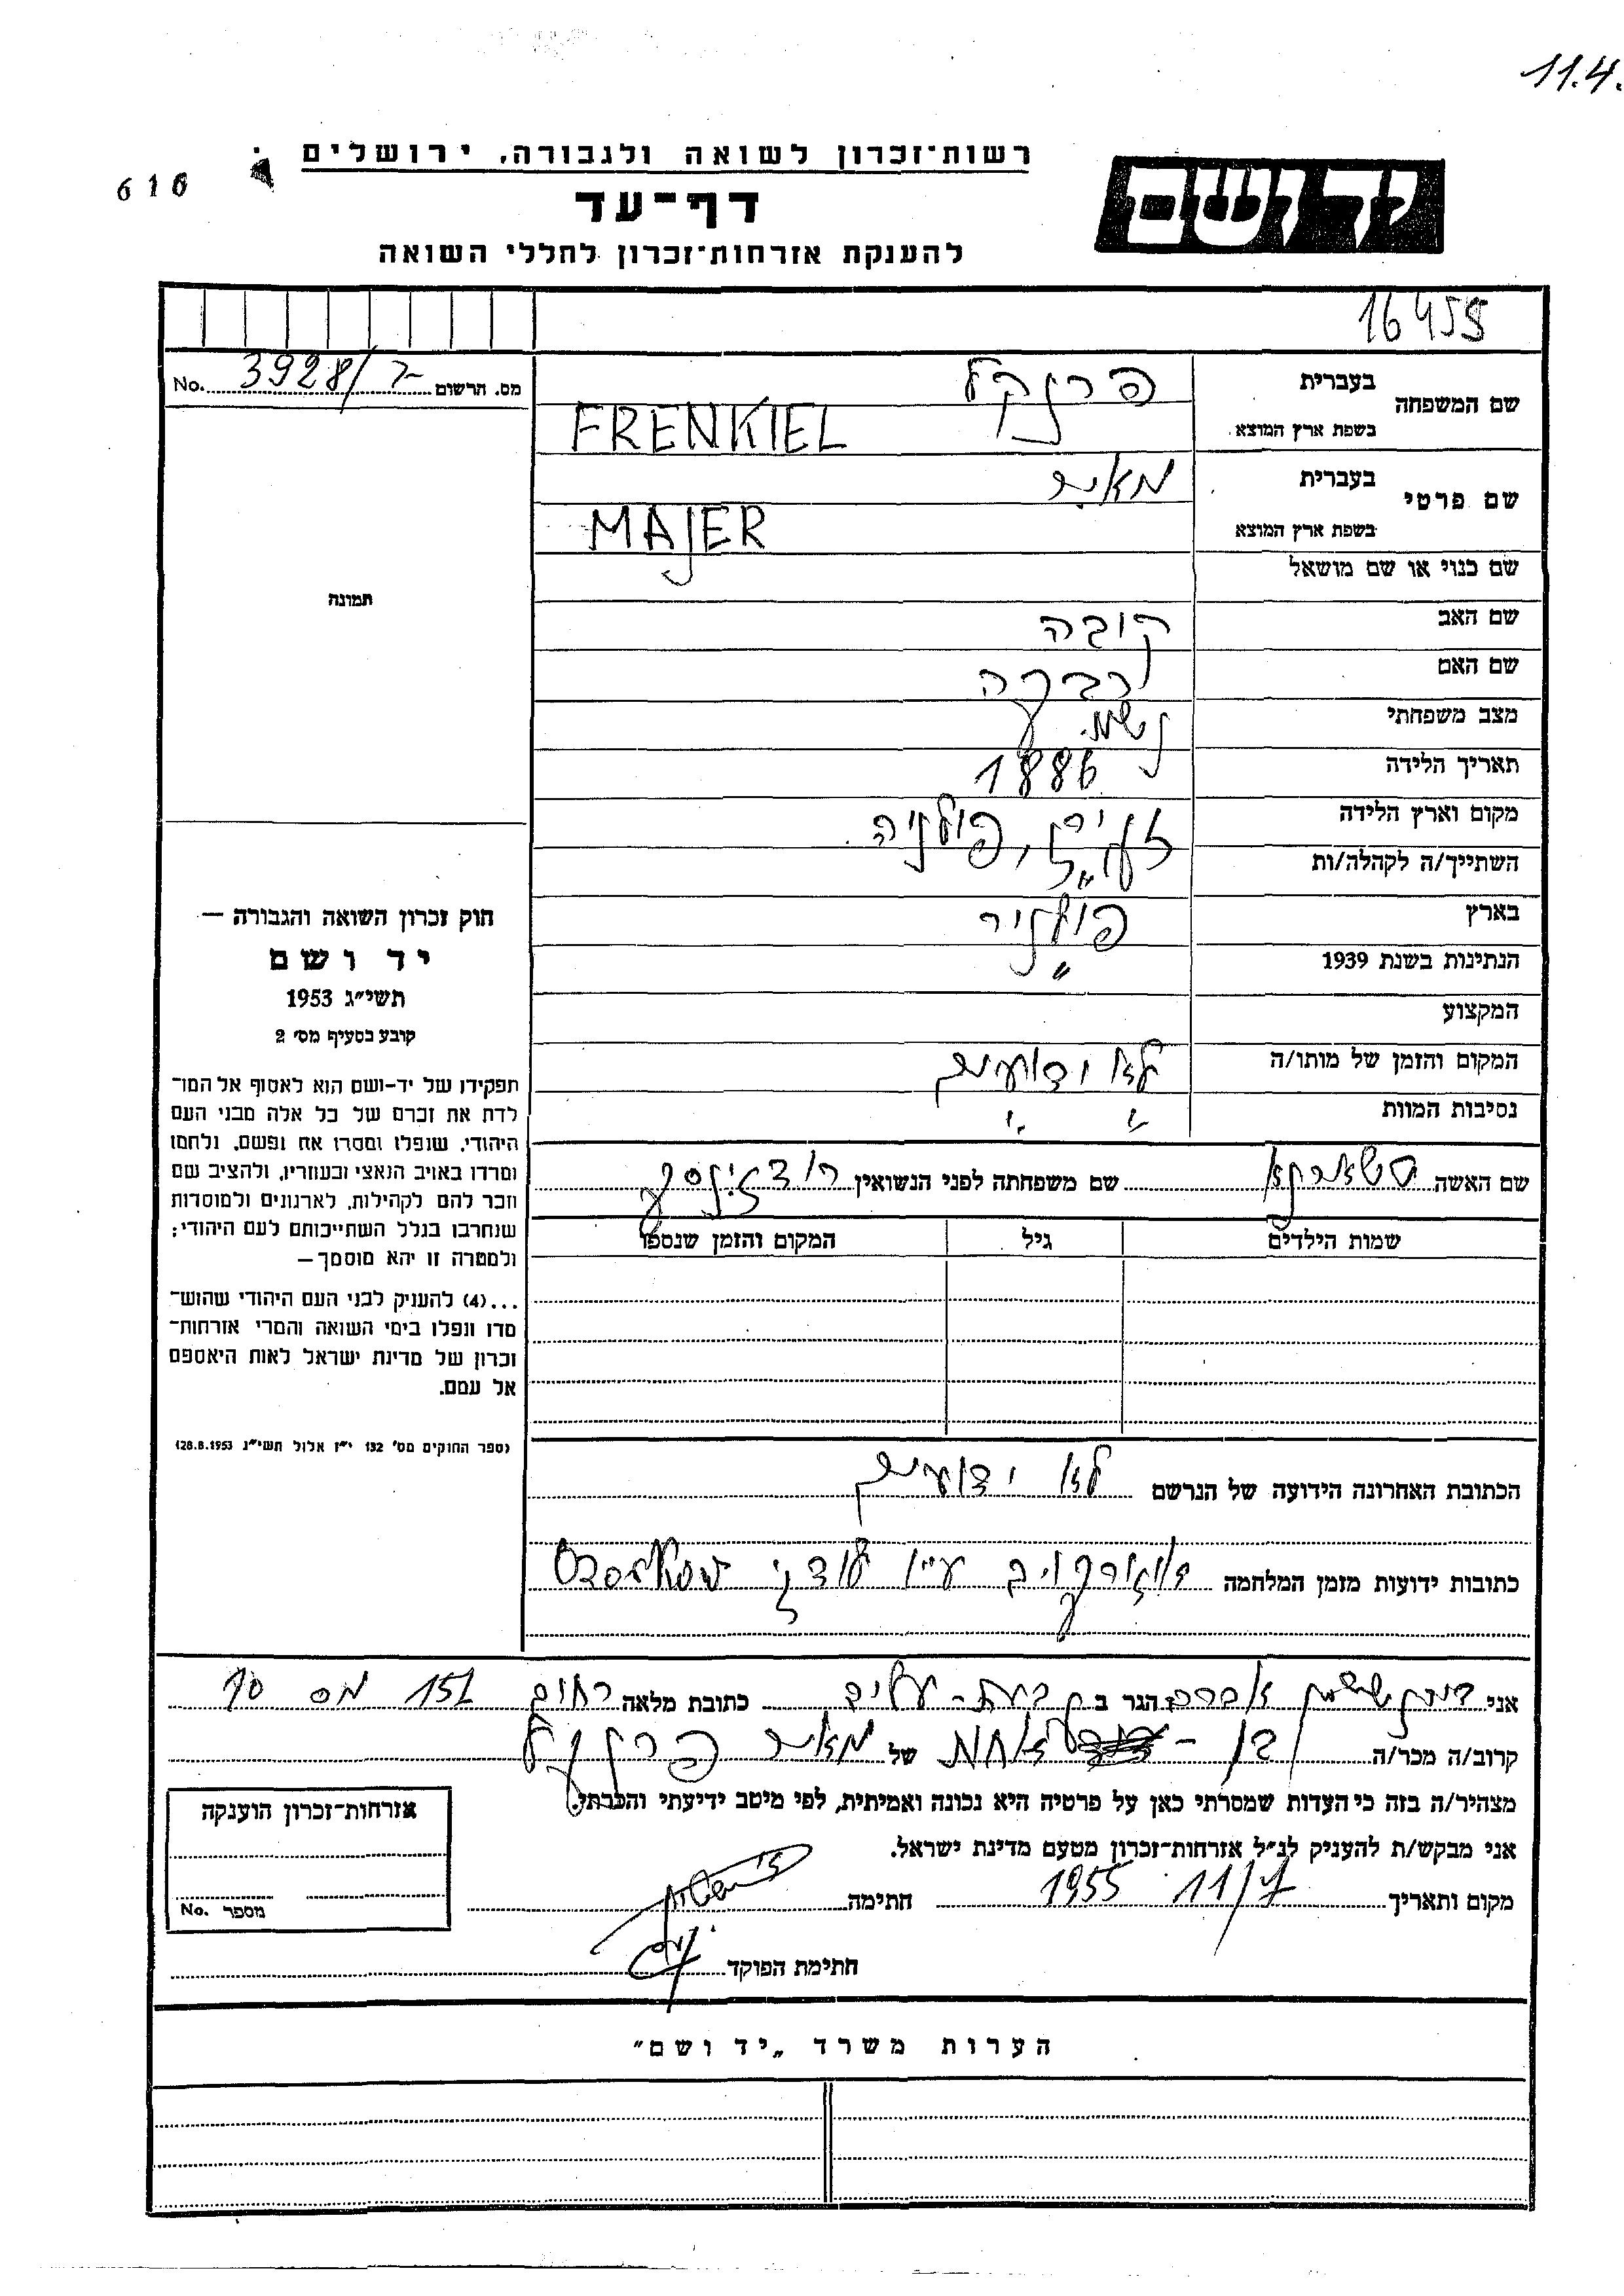 11.4.
616
רשות־זכרון לשואה ולגבורה, ירושלים
דף־עד
להענקת אזרחות־זכרון לחללי השואה
יד ושם
16455
מס. הרשום 3928/ No.
שם המשפחה בעברית פרנקל
בשפת ארץ המוצא FRENKIEL
שם פרטי בעברית מאיר
בשפת ארץ המוצא MAJER
שם כנוי או שם מושאל
שם האב קובה
שם האם רבקה
מצב משפחתי
תאריך הלידה 1886
מקום וארץ הלידה זגירז, פולניה
השתייך/ה לקהלה/ות "
בארץ פולניה
הנתינות בשנת 1939 "
המקצוע
המקום והזמן של מותו/ה לא ידועים
נסיבות המוות " "
שם האשה שם משפחתה לפני הנשואין
שמות הילדים גיל המקום והזמן שנספו
הכתובת האחרונה הידועה של הנרשם לא ידועים
כתובות ידועות מזמן המלחמה
תמונה
חוק זכרון השואה והגבורה —
יד ושם
תשי״ג 1953
קובע בסעיף מס׳ 2
תפקידו של יד-ושם הוא לאסוף אל המו־
לדת את זכרם של כל אלה מבני העם
היהודי, שנפלו ומסרו את נפשם, נלחמו
ומרדו באויב הנאצי ובעוזריו, ולהציב שם
וזכר להם לקהילות, לארגונים ולמוסדות
שנחרבו בגלל השתייכותם לעם היהודי;
ולמטרה זו יהא מוסמך —
...(4) להעניק לבני העם היהודי שהוש־
מדו ונפלו בימי השואה והמרי אזרחות־
זכרון של מדינת ישראל לאות היאספם
אל עמם.
(ספר החוקים מס׳ 132 י״ז אלול תשי״ג 28.8.1953)
אני אברהם הגר ב כתובת מלאה רחוב 151 מס 10
קרוב/ה מכר/ה בן - אחות של מאיר פרנקל
מצהיר/ה בזה כי העדות שמסרתי כאן על פרטיה היא נכונה ואמיתית, לפי מיטב ידיעתי והכרתי.
אני מבקש/ת להעניק לנ״ל אזרחות־זכרון מטעם מדינת ישראל.
מקום ותאריך 11/7 1955 חתימה
חתימת הפוקד
אזרחות־זכרון הוענקה
מספר No.
הערות משרד „יד ושם״